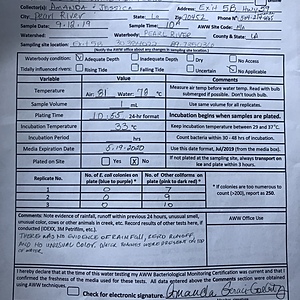 Collector(s): AMANDA + JESSICA Address: Exit 5B Hwy 59
City: PEARL RIVER State: LA Zip: 70452 Phone N°:
Sample Date: 9.18.19 Sample Time: 10A AWW Site #:
Watershed: Waterbody: PEARL RIVER County & State: LA
Sampling site location: EXIT 5B
(Notify the AWW office about any changes in sampling site location.)
Waterbody condition: Adequate Depth Inadequate Depth Dry No Access
Tidally influenced rivers: Rising Tide Falling Tide Uncertain No Applicable
Variable Value Comments
Temperature Air: 31 Water: 78 °C Measure air temp before water temp. Read with bulb submerged if possible. Don't touch bulb.
Sample Volume 1 mL Use same volume for all samples.
Plating Time 10:55 24-hr format Incubation begins when samples are plated.
Incubation Temperature 33 °C Keep incubation temperature between 29 and 37° C.
Incubation Period hrs Count bacteria within 30 - 48 hrs of incubation.
Media Expiration Date 6.19.2020 Use this date format, Jul/2019 (from the media box).
Plated on Site Yes X No If not plated at the sampling site, always transport on ice and plate within 3 hours.
Replicate No. No. of E. coli colonies on plate (blue to purple) * No. of Other coliforms on plate (pink to dark red) * * If colonies are too numerous to count (>200), report as 250.
1 0 7
2 0 9
3 0 10
Comments: Note evidence of rainfall, runoff within past 24 hours, unusual smell, unusual color, cows or other animals in creek, etc. Record results of other tests here, if conducted (IDEXX, 3M Petrifilm, etc.).
AWW Office Use
THERE WAS NO EVIDENCE OF RAINFALL, RUNOFF,
AND NO UNUSUAL COLOR.
I hereby declare that at the time of this water testing my AWW Bacteriological Monitoring Certification was current and that I confirmed the freshness of the media used for these tests. All data entered above the Comments section were obtained using AWW techniques.
Check for electronic signature.